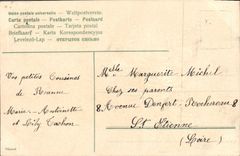 Union postale universelle - Weltpostverein
Carte postale - Postkarte - Postcard
Cartolina postale - Tarjeta postal
Briefkaart - Karta Korespondencyjna
Levelező-Lap
Vos petites Cousines
de Roanne
Marie-Antoinette
et Lily Cachon
Melle Marguerite Michel
Chez ses parents
8 Avenue Denfert-Rochereau 8
St Etienne
(Loire)